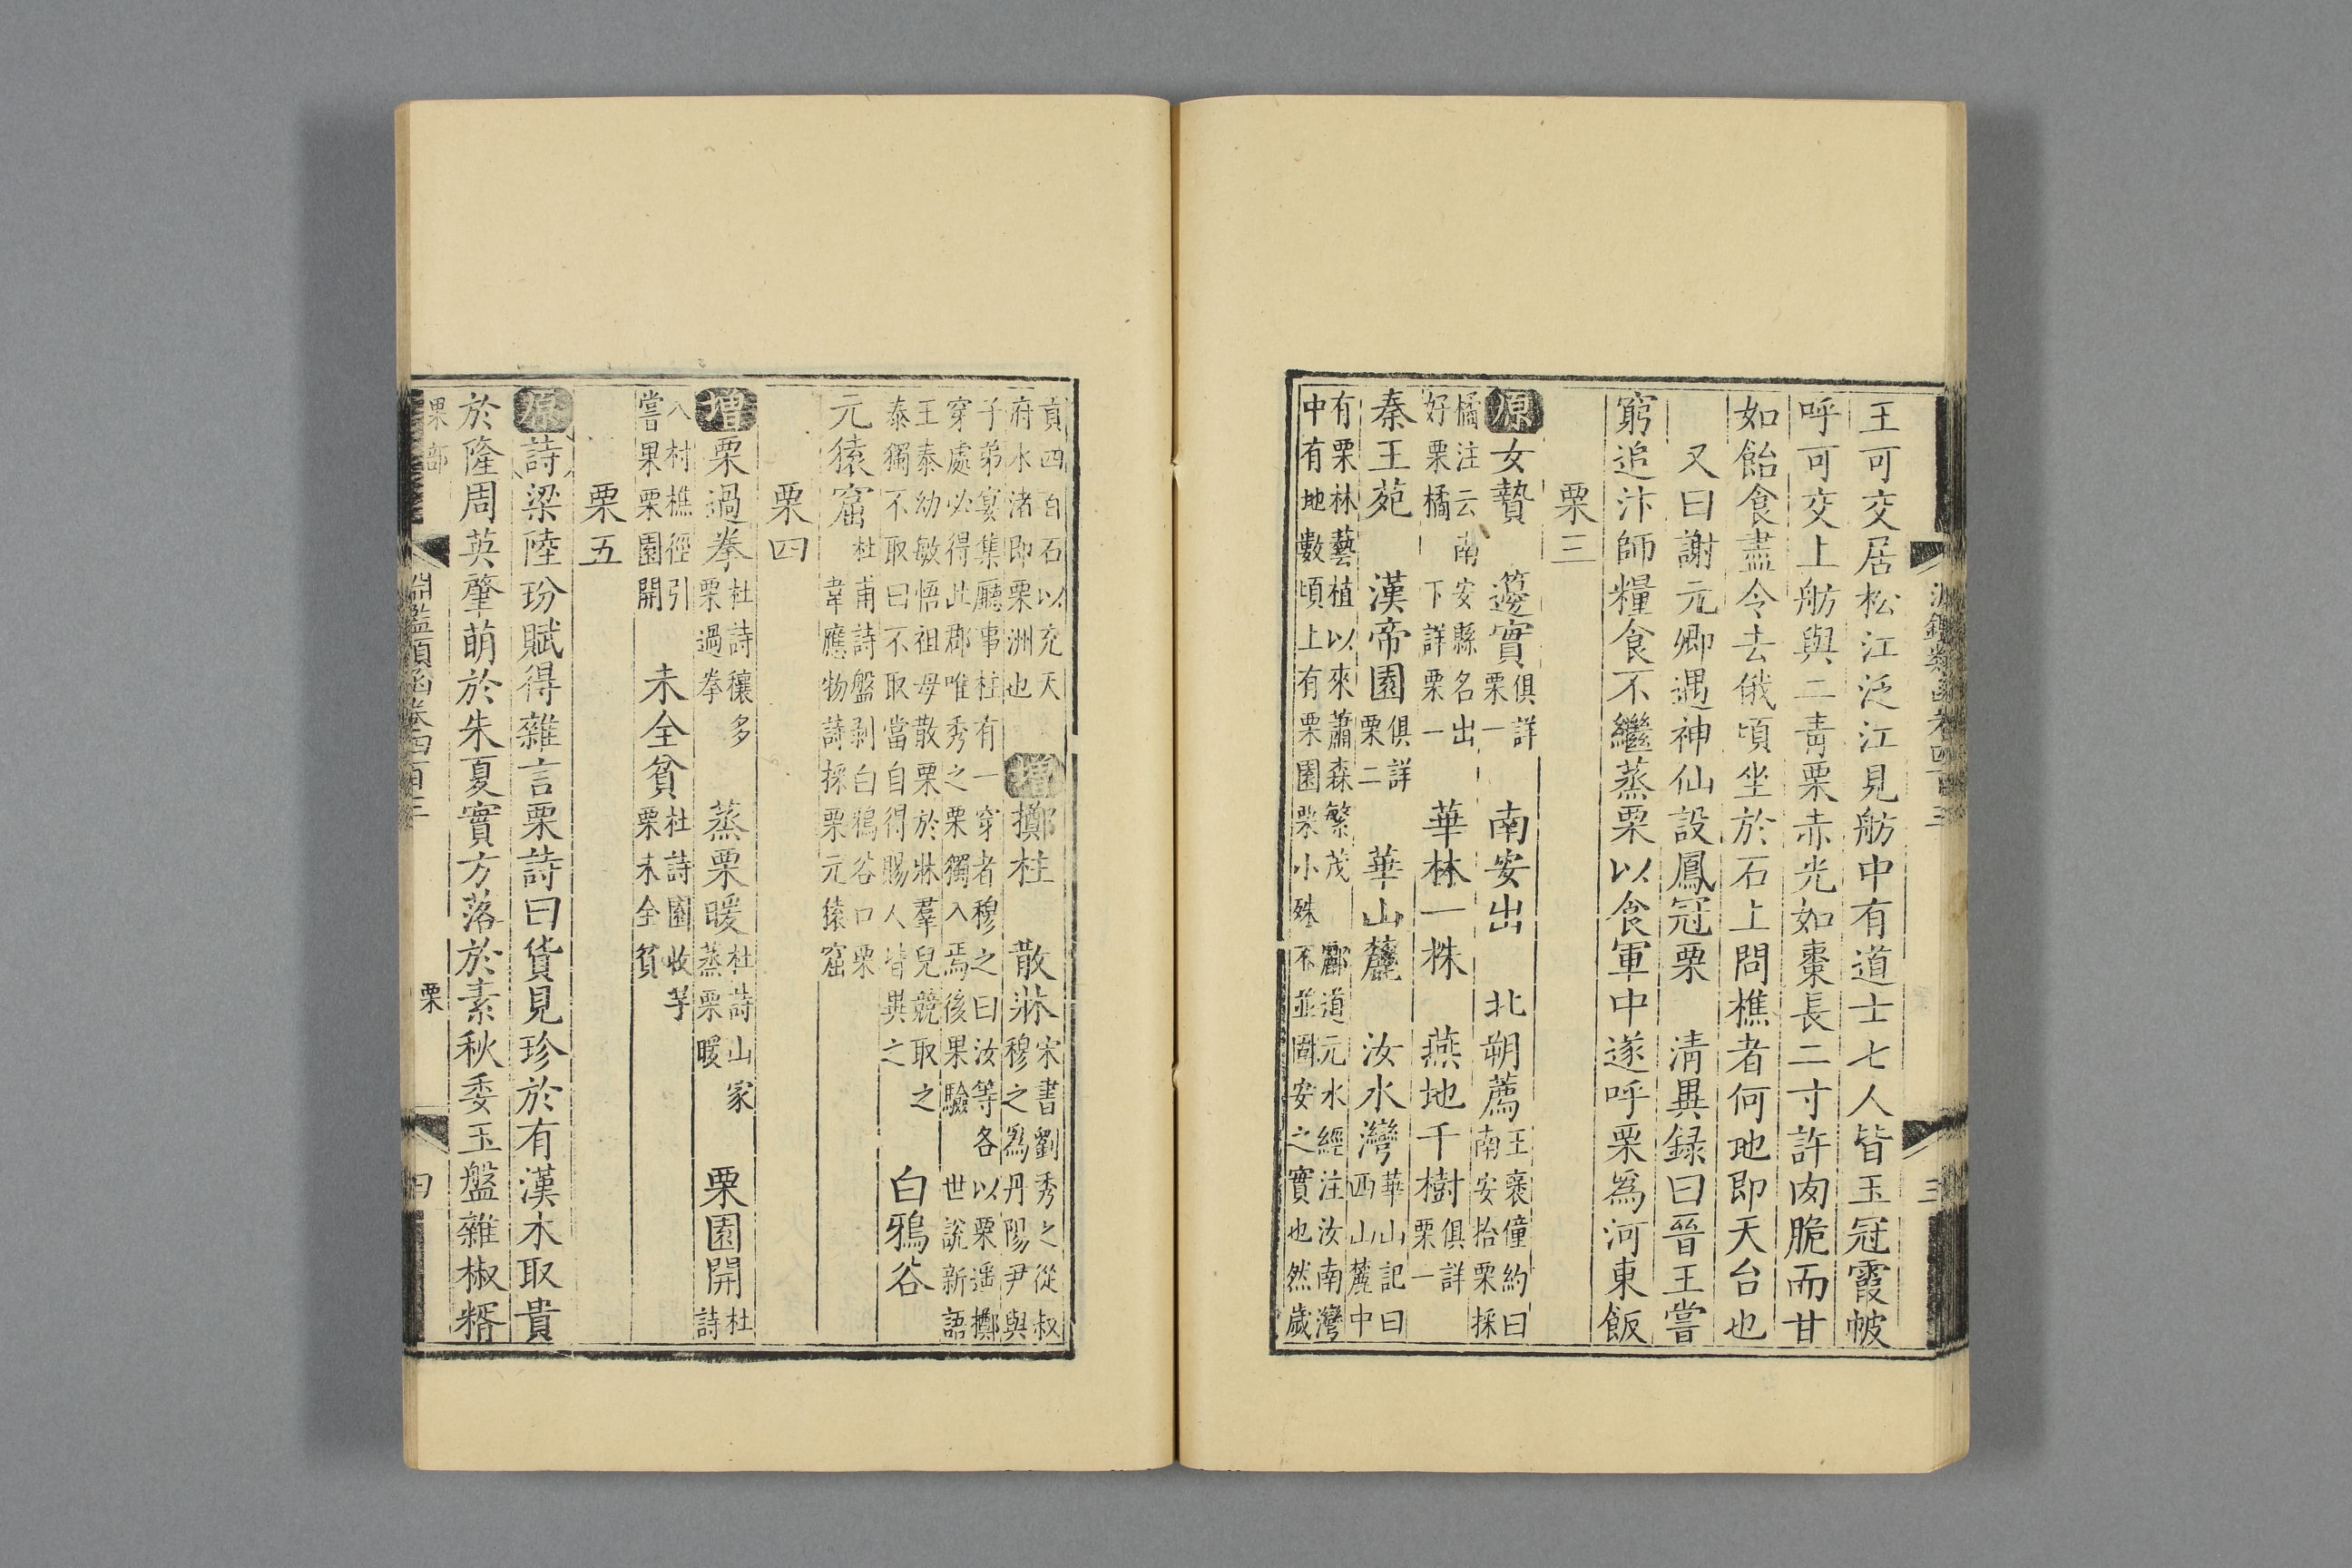 王可交居松江泛江見舫中有道士七人皆玉冠霞帔
呼可交上舫與二靑栗赤光如棗長二寸許肉脆而甘
如飴食盡令去俄頃坐於石上問樵者何地即天台也
又曰謝元卿遇神仙設鳳冠栗　淸異録曰晉王嘗
窮追汴師糧食不繼蒸栗以食軍中遂呼栗爲河東飯
栗三
原女贄　籩實俱詳栗一　南安出　北朔薦王褒僮約曰南安拾栗採
橘注云南安縣名出好栗橘下詳栗一　華林一株　燕地千樹俱詳栗一
秦王苑　漢帝園俱詳栗二　華山麓　汝水灣華山記曰西山麓中
有栗林藝植以來蕭森繁茂　酈道元水經注汝南灣
中有地數頃上有栗園栗小殊不並固安之實也然歲
貢四百石以充天府水渚即栗洲也　增擲柱　散牀宋書劉秀之從叔穆之爲丹陽尹與
子弟宴集廳事柱有一穿者穆之曰汝等各以栗遥擲
穿處必得此郡唯秀之栗獨入焉後果驗　世說新語
王泰幼敏悟祖母散栗於牀羣兒競取之
泰獨不取曰不取當自得賜人皆異之　白鴉谷
元猿窟杜甫詩盤剥白鴉谷口栗韋應物詩採栗元猿窟
栗四
增栗過拳杜詩穰多栗過拳　蒸栗暖杜詩山家蒸栗暖　栗園開杜詩
入村樵徑引嘗果栗園開　未全貧杜詩園收芋栗未全貧
栗五
原詩梁陸玢賦得雜言栗詩曰貨見珍於有漢木取貴
於隆周英肇萌於朱夏實方落於素秋委玉盤雜椒糈
果部
淵鑑類函卷四百三
栗
四